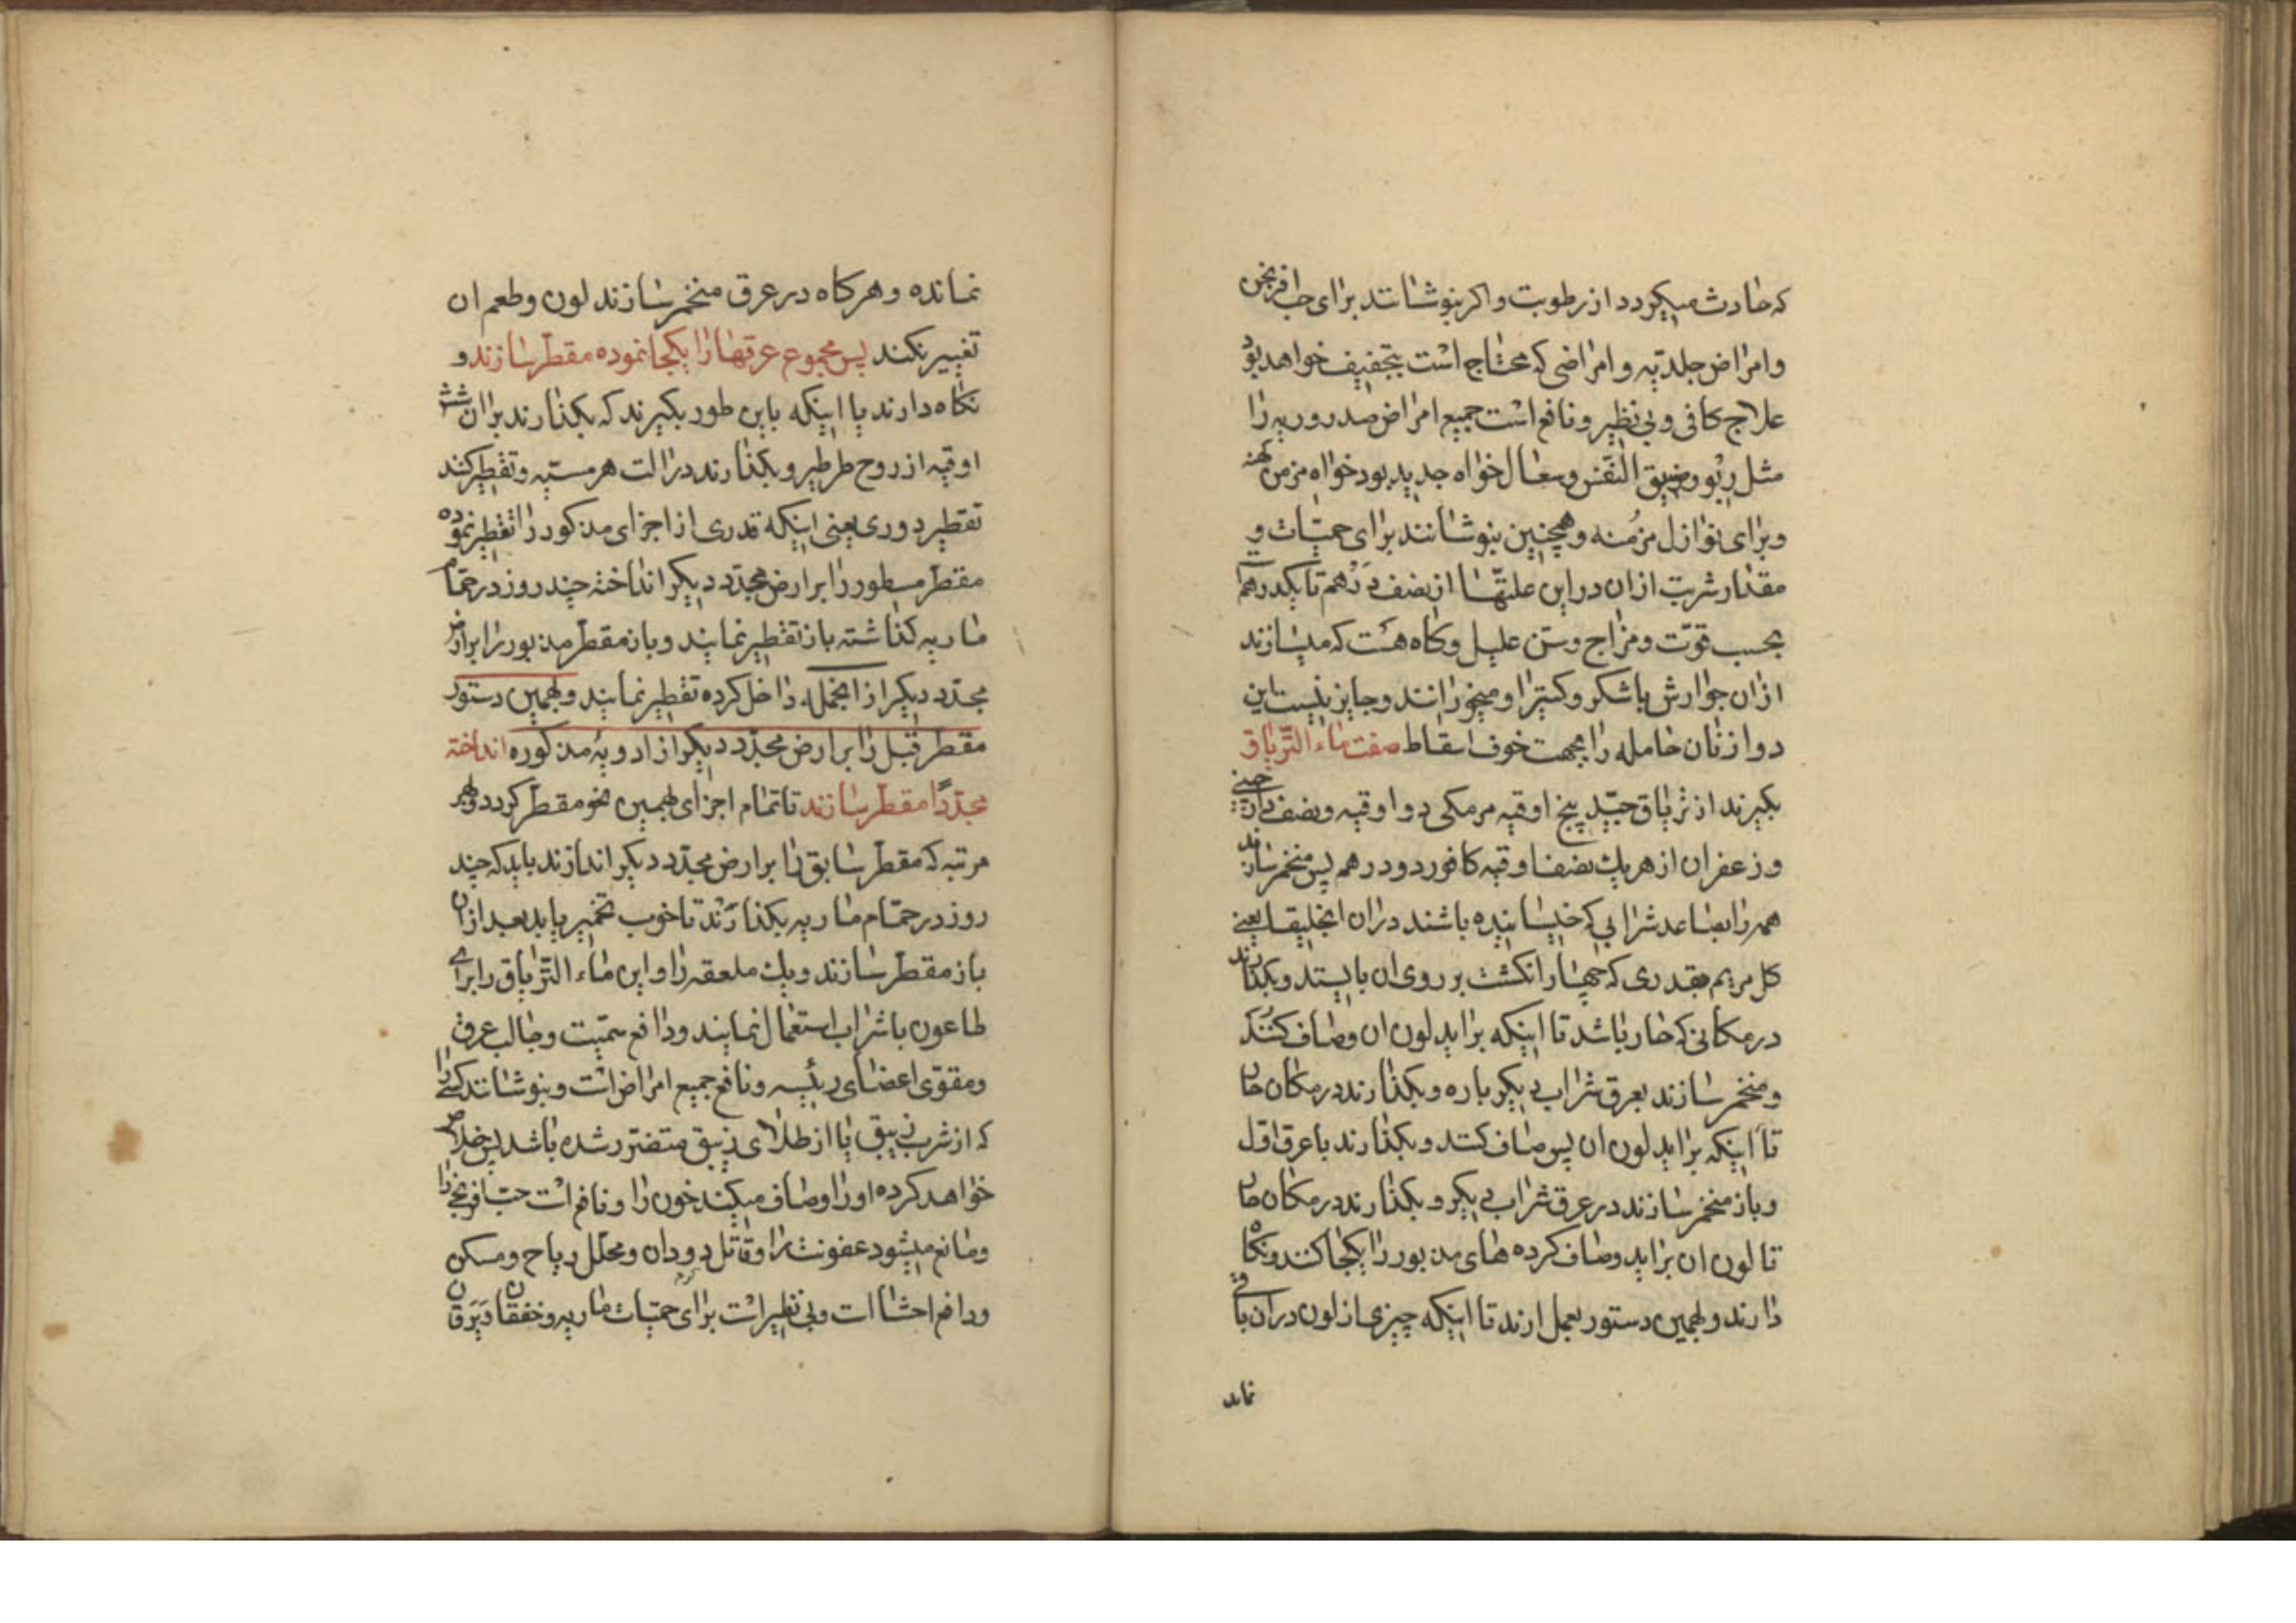 که حادث میکردد از رطوبت و اکر بنوشانند برای حب افرنجی
و امراض جلدیه و امراضی که محتاج است بتجفیف خواهد بود
علاج کافی و بی نظیر و نافع است جمیع امراض صدروریه را
مثل ربو و ضیق النفس و سعال خواه جدید بود خواه مزمن کهنه
و برای نوازل مزمنه و همچنین بنوشانند برای حمیات و
مقدار شربت از ان در این علتها از نصف درهم تا یکدرهم
بحسب قوت و مزاج و سن علیل و کاه هست که میسازند
ازان جوارش با شکر و کتیرا و میخورانند و جایز نیست این
دوا زنان حامله را بجهت خوف اسقاط صفت ماء التریاق
بکیرند از تریاق جید پنج اوقیه مر مکی دو اوقیه و نصف
و زعفران از هر یک نصف اوقیه کافور دو درهم پس منخمر سازند
همه را بصاعد شرابی که خیسانیده باشند دران انجلیقا یعنی
کل مریم بقدری که چهار انکشت بر روی ان بایستد و بکذارند
در مکانی که حار باشد تا اینکه براید لون ان و صاف کنند
و منخمر سازند بعرق شراب دیکر باره و بکذارند در مکان حار
تا اینکه براید لون ان پس صاف کنند و بکذارند با عرق اول
و باز منخمر سازند در عرق شراب دیکر و بکذارند در مکان حار
تا لون ان براید و صاف کرده های مذبور را یکجا کنند و نکاه
دارند و بهمین دستور بعمل ارند تا اینکه چیزی از لون دران باقی
نماند
نمانده و هرکاه در عرق منخمر سازند لون و طعم ان
تغییر نکند پس مجموع عرقها را یکجا نموده مقطر سازند و
نکاه دارند یا اینکه باین طور بکیرند که بکذارند بران شش
اوقیه از روح طرطیر و بکذارند در الت هرمسیه و تقطیر کنند
تقطیر دوری یعنی اینکه قدری از اجزای مذکور را تقطیر نموده
مقطر مسطور را بر ارض مجدد دیکر انداخته چند روز در حمام
ماریه کذاشته باز تقطیر نمایند و باز مقطر مذبور را بر ارض
مجدد دیکر از انجمله داخل کرده تقطیر نمایند و بهمین دستور
مقطر قبل را بر ارض مجدد دیکر از ادویهٔ مذکوره انداخته
مجددا مقطر سازند تا تمام اجزای بهمین نحو مقطر کردد و هر
مرتبه که مقطر سابق را بر ارض مجدد دیکر اندازند باید که چند
روز در حمام ماریه بکذارند تا خوب تخمیر یابد بعد ازان
باز مقطر سازند و یک ملعقه را و این ماء التریاق را برای
طاعون با شراب استعمال نمایند و دافع سمیت و جالب عرق
و مقوی اعضای رئیسه و نافع جمیع امراض است و بنوشانند کسی را
که از شرب زیبق یا از طلای زیبق متضرر شده باشد پس خلاص
خواهد کرده او را و صاف میکند خون را و نافع است حب افرنجی را
و مانع میشود عفونت را و قاتل دودان و محلل ریاح و مسکن
و دافع احشا است و بی نظیر است برای حمیات ماریه و خفقان و یرقان